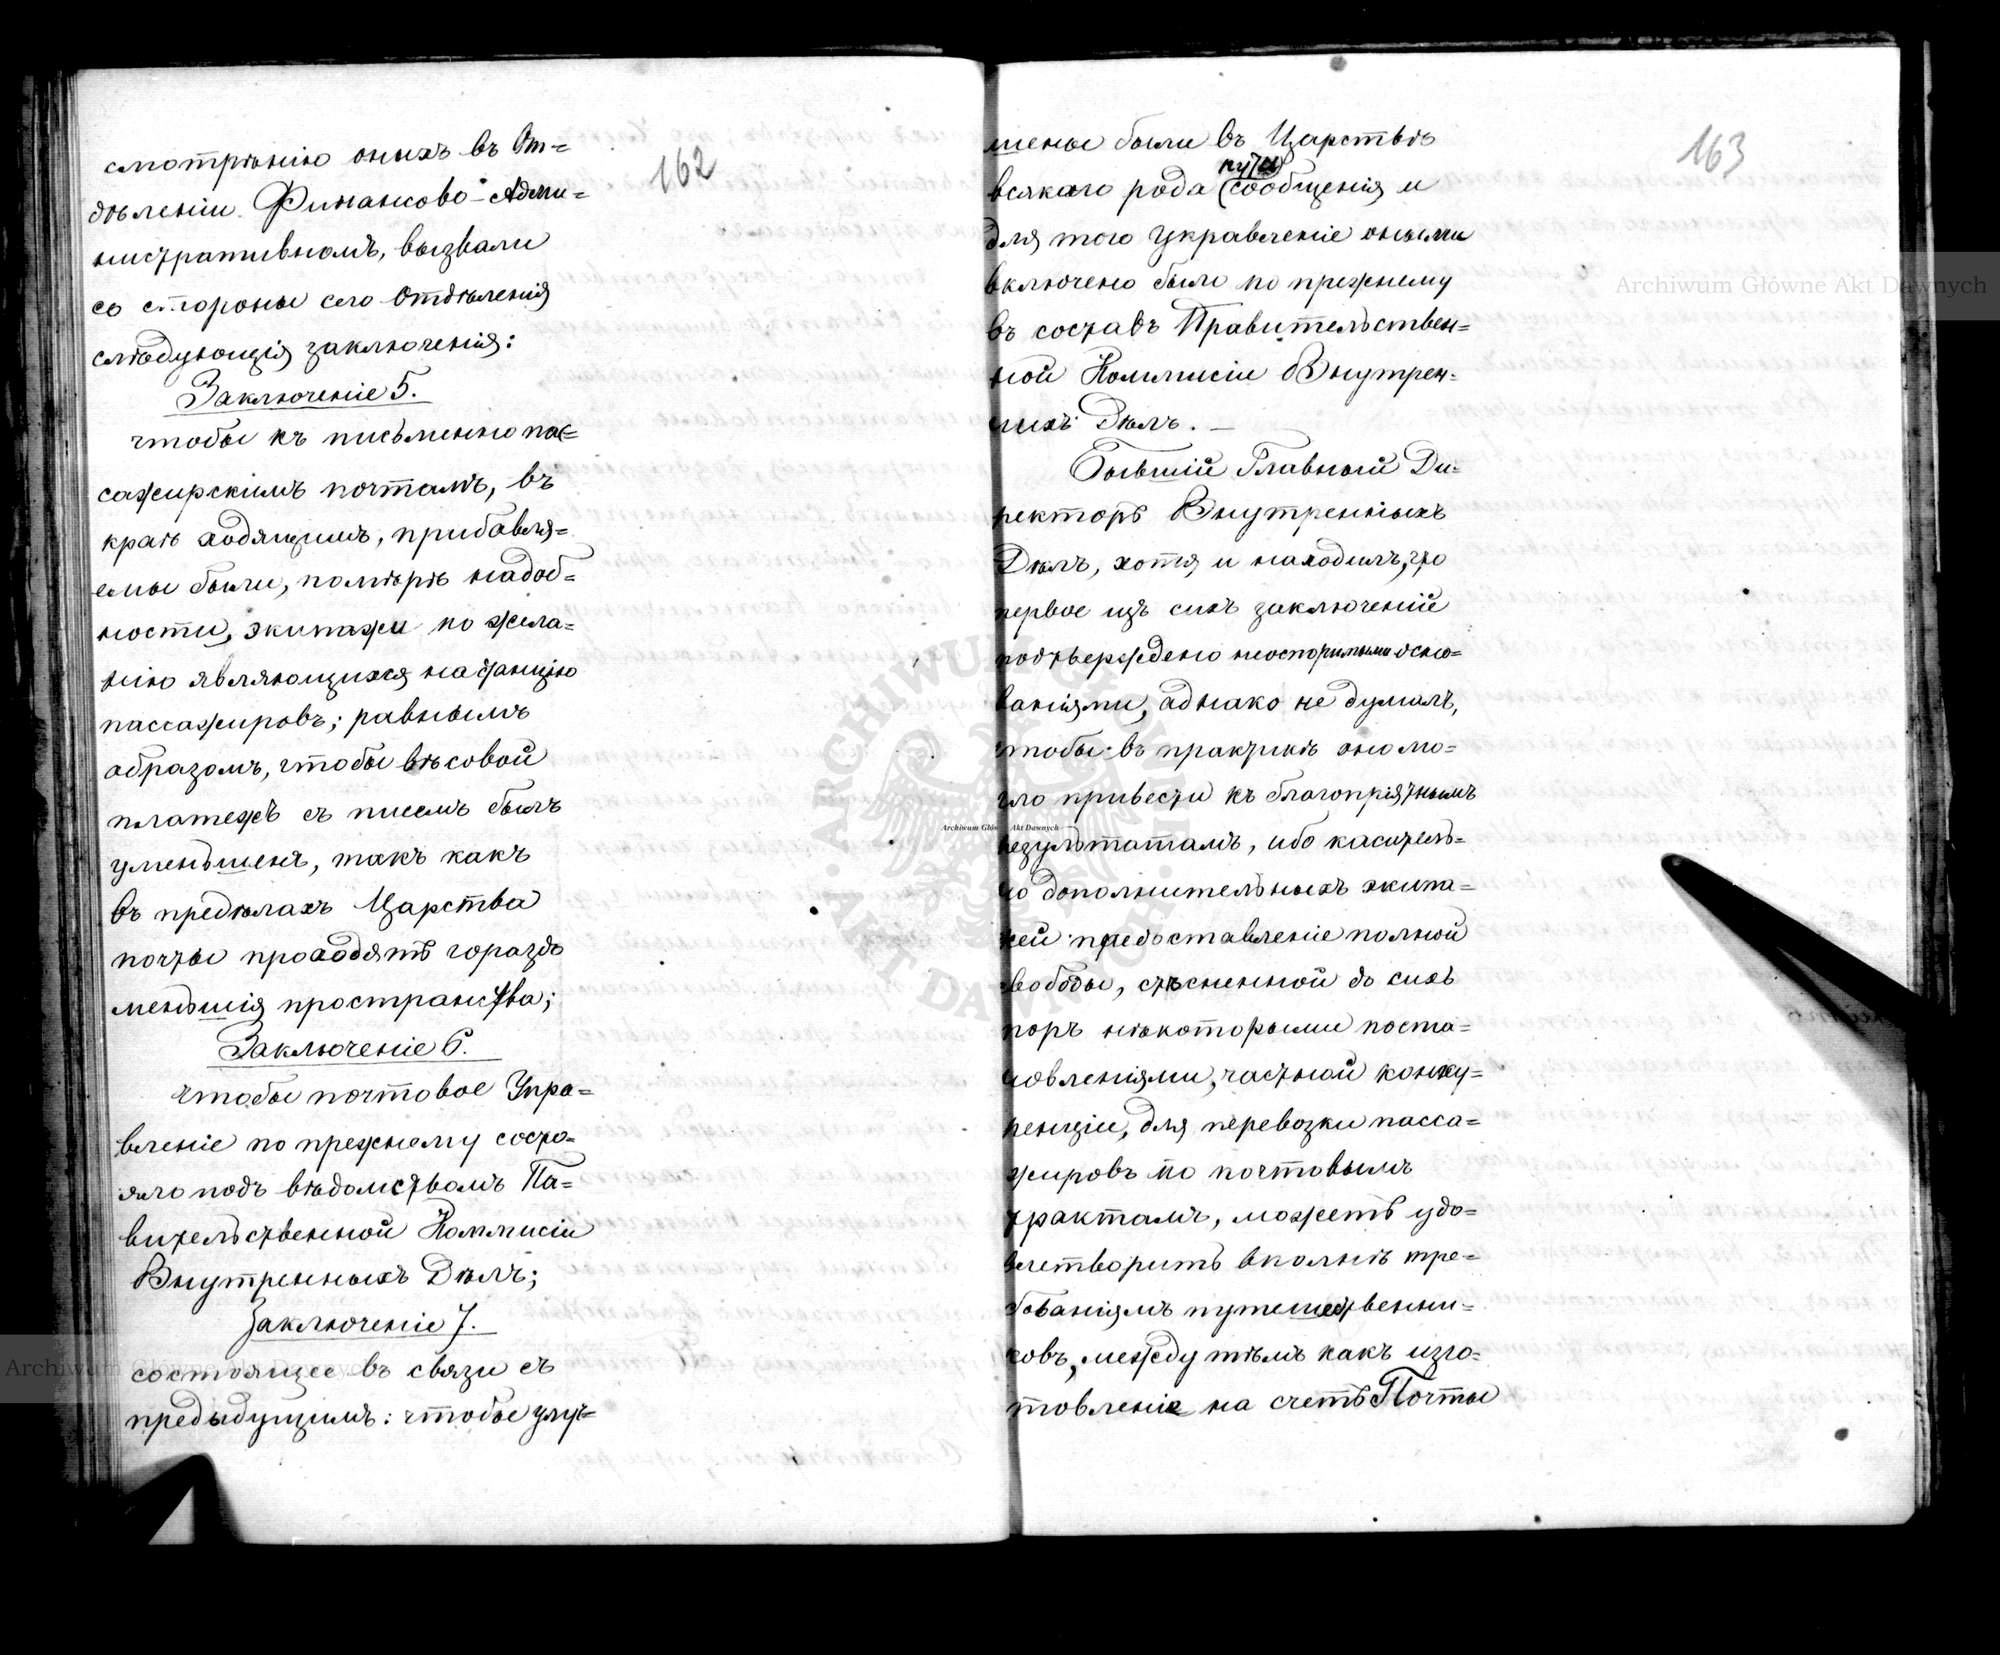 162
смотрѣнію оныхъ въ От=
дѣленіи Финансово-Адми=
нистративномъ, вызвали
со стороны сего Отдѣленія
слѣдующія заключенія:
Заключеніе 5.
чтобы къ письменно пас=
сажирскимъ почтамъ, въ
краѣ ходящимъ, прибавля=
емы были, по мѣрѣ надоб=
ности, экипажи по жела=
нію являющихся на станцію
пассажировъ; равнымъ
образомъ, чтобы вѣсовой
платежъ съ писемъ былъ
уменьшенъ, такъ какъ
въ предѣлахъ Царства
почты проходятъ гораздо
меньшія пространства;
Заключеніе 6.
чтобы почтовое Упра=
вленіе по прежнему состо=
яло подъ вѣдомствомъ Па=
вительственной Коммисіи
Внутренныхъ Дѣлъ;
Заключеніе 7.
состоящее въ связи съ
предыдущимъ: чтобы улуч=
163
шены были въ Царствѣ
всякаго рода (пути) сообщенія и
для того Управленіе оными
включено было по прежнему
въ составъ Правительствен=
ной Коммисіи Внутрен=
нихъ Дѣлъ. —
Бывшій Главный Ди=
ректоръ Внутренныхъ
Дѣлъ, хотя и находилъ, что
первое изъ сихъ заключеній
подтверждено неоспоримыми осно=
ваніями, однако не думалъ,
чтобы въ практикѣ оно мо=
гло привести къ благопріятнымъ
результатамъ, ибо касатель=
но дополнительныхъ экипа=
жей предоставленіе полной
свободы, стѣсненной до сихъ
поръ нѣкоторыми поста=
новленіями, частной конку=
ренціи, для перевозки пасса=
жировъ по почтовымъ
трактамъ, можетъ удо=
влетворить вполнѣ тре=
бованіямъ путешественни=
ковъ, между тѣмъ какъ изго=
товленіе на счетъ Почты
Archiwum Główne Akt Dawnych
Archiwum Główne Akt Dawnych
Archiwum Główne Akt Dawnych
ARCHIWUM GŁÓWNE AKT DAWNYCH